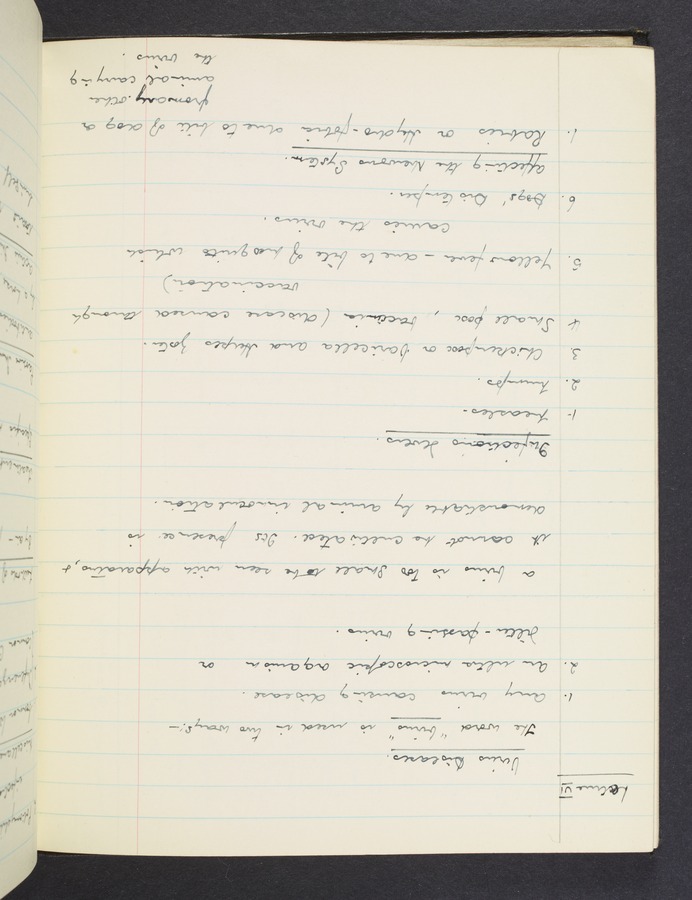 Lecture VI
Virus Diseases.
The word "virus" is used in two ways:-
1. Any virus causing disease.
2. An ultra microscopic organism or
filter-passing virus.
a virus is too small to be seen with apparatus, &
it cannot be cultivated. Its presence is
demonstrable by animal innoculation.
Infectious Fevers.
1. Measles.
2. Mumps.
3. Chickenpox or Varicella and Herpes Zoster.
4 Small pox, vaccinia (disease carried through
vaccination)
5. Yellow fever - due to bite of mosquito which
carries the virus.
6. Dogs' Distemper.
Affecting the Nervous System.
1. Rabies or Hydro-phobia due to bite of dog or
from any other
animal carrying
the virus.